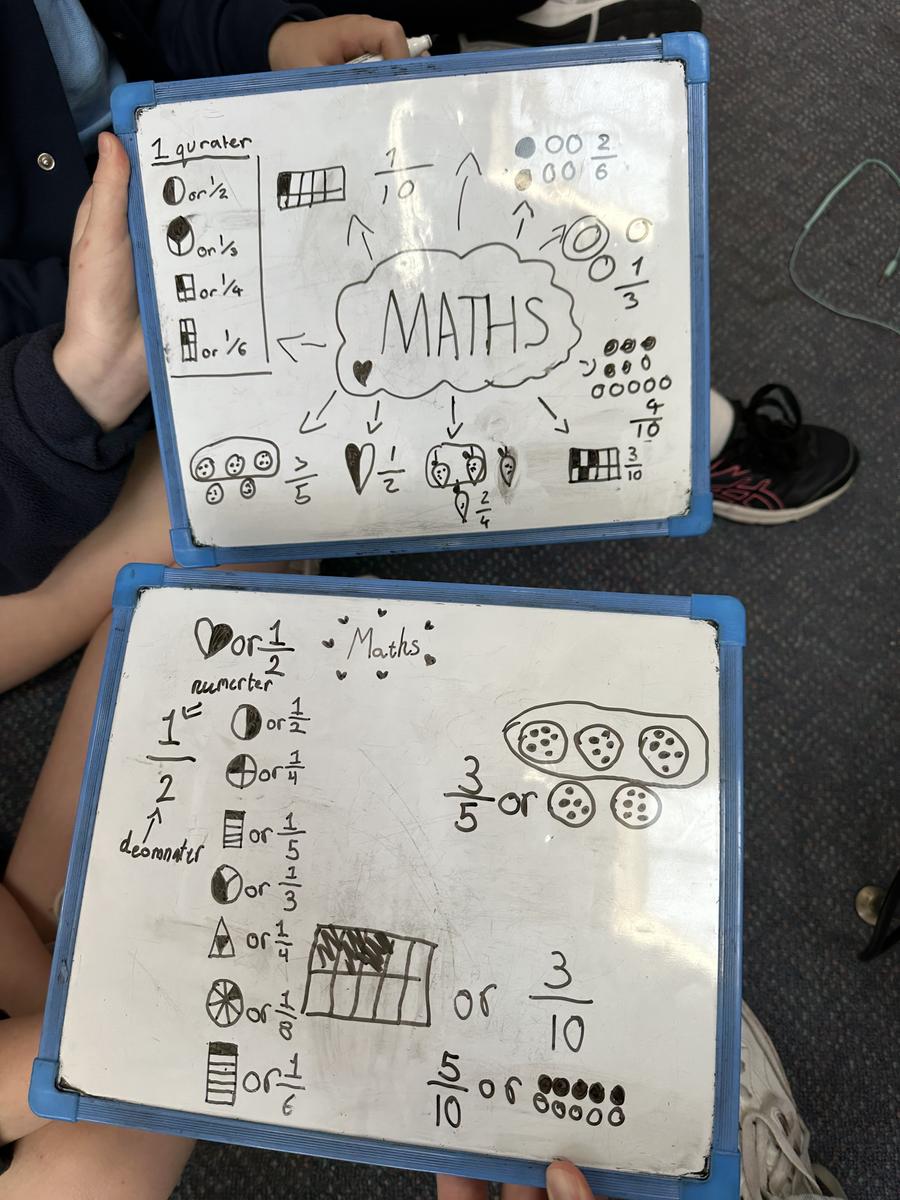 1 qurater
or 1/2
or 1/3
or 1/4
or 1/6
1/10
2/6
1/3
MATHS
4/10
3/5
1/2
2/4
3/10
or 1/2
Maths
numerter
1/2
deomnater
or 1/2
or 1/4
or 1/5
or 1/3
or 1/4
or 1/8
or 1/6
3/5 or
or 3/10
5/10 or